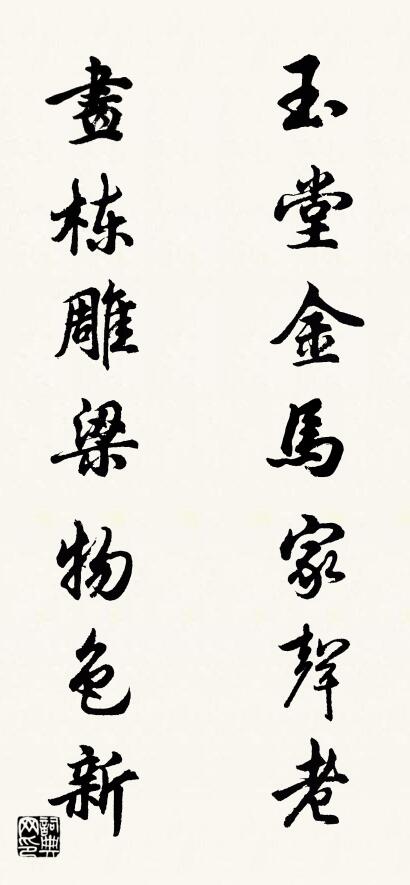 玉堂金馬家聲老
畫栋雕梁物色新
詞典网印